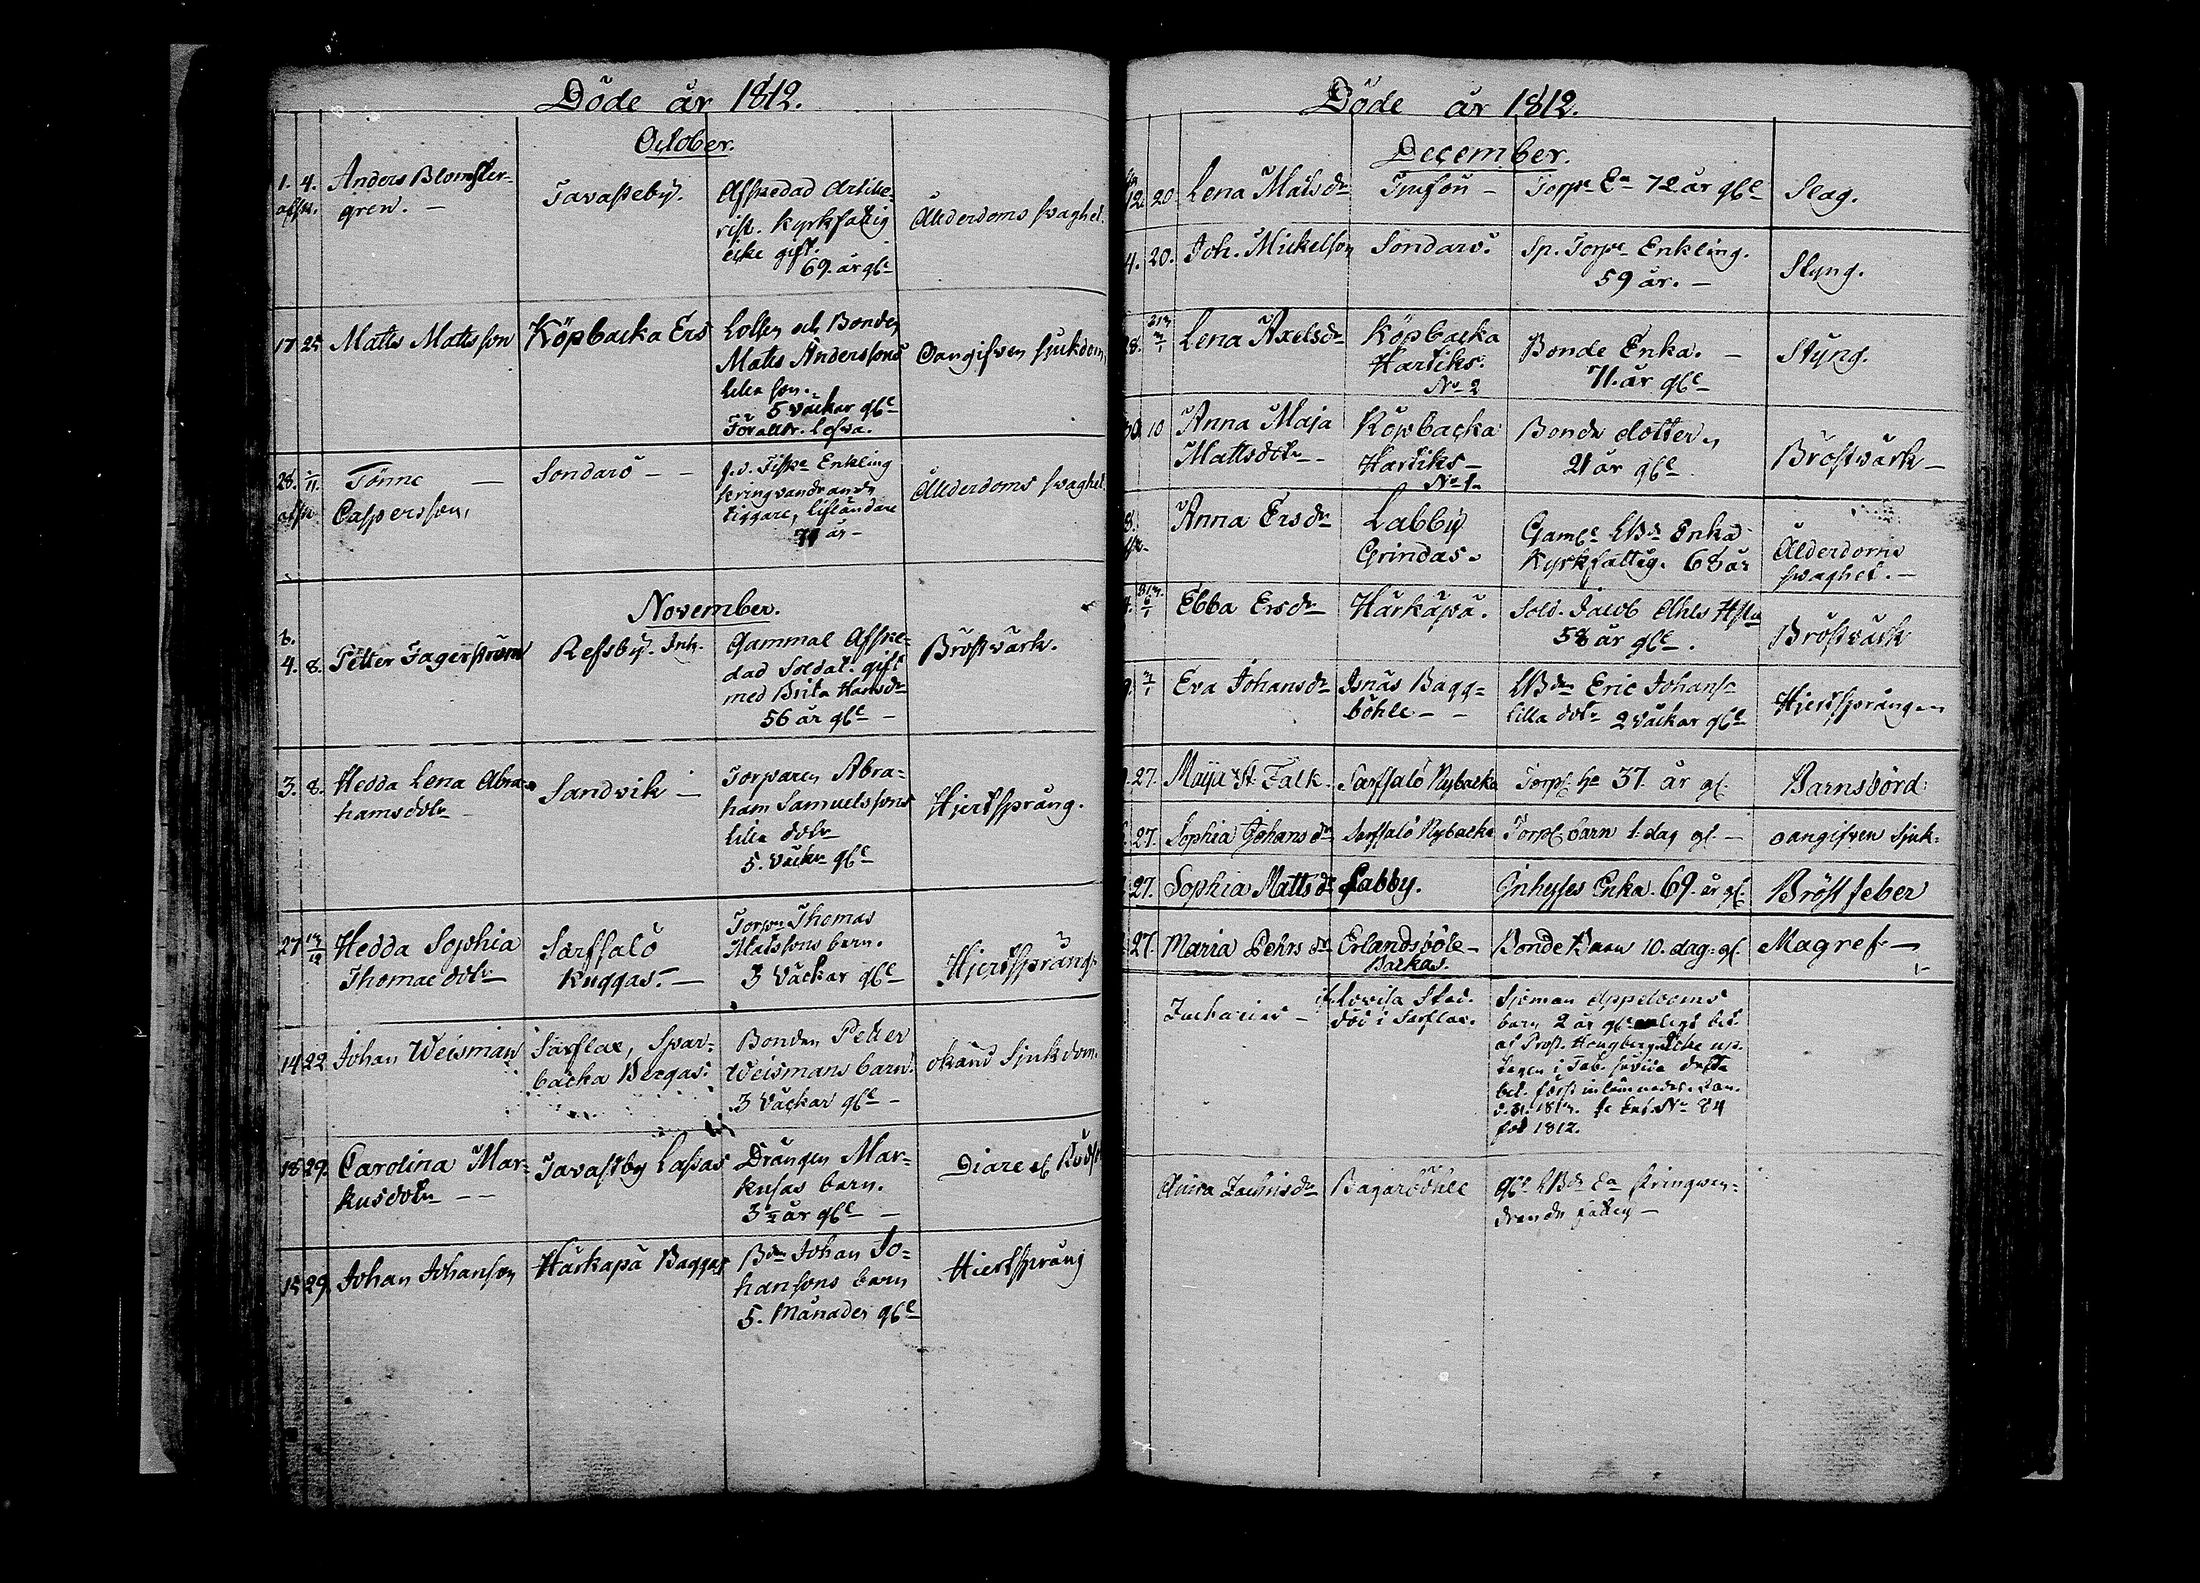 Döde år 1812.
October.
1. 4. Anders Blomster-
gren. —
Tavasteby.
Afskedad Artille-
rist. kyrkfattig
icke gift.
69. år gl.
Ålderdoms svaghet.
17 25 Matts Mattsson
Köpbacka Ers
Matts Anderssons
lilla son.
5 väckor gl.
Föräldr. lefva.
Oangifven sjukdom
28. 1/11. Tönne —
Caspersson,
Sondarö — —
f.d. Fiska Enkling
kringvandrande
tiggare, lifländare
71 år —
Ålderdoms svaghet
November.
4. 8. Petter Fagerström
Refsby. Inh.
Gammal Afske-
dad Soldat. gift
med Brita Hansdr
56 år gl. —
Bröstvärk.
3. 8. Hedda Lena Abra-
hamsdotr
Sandvik —
Torparen Abra-
ham Samuelssons
lilla dotr
5. väckr gl.
Hjertsprång.
27 13/12 Hedda Sophia
Thomae dotr
Särfsalö
Kuggas. —
Torpn Thomas
Matssons barn.
3 Väckor gl.
Hjertsprång
14 22 Johan Weisman
Särflax, Spar-
backa Bergas.
Bonden Petter
Weismans barn.
3 Väckor gl. —
okänd Sjukdom.
18 29. Carolina Mar-
kusdotr — —
Tavastby Lassas
Drängen Mar-
kusas barn.
3 1/2 år gl. —
Diare el. Rödst
15 29. Johan Johanson
Härkäpä Baggas
Bdn Johan Jo-
hansons barn
5. Månader gl.
Hiertsprång
Döde år 1812.
December.
12. 20 Lena Matsdr
Torpe Ea 72 år gl.
Slag.
4. 20. Joh. Mickelson
Sondarö.
Sp. Torpe Enkling.
59 år. —
Styng.
28. 3/1 Lena Axelsdr
Köpbacka
Hartiks.
No 2
Bonde Enka. —
71. år gl.
Styng.
30 10 Anna Maja
Mattsdotr —
Köpbacka
Hartiks —
No 1.
Bonde dotter,
21 år gl.
Bröstvärk —
8. Anna Ersdr
Labby
Grindas.
Gaml. LBds Enka
Kyrkfattig. 68 år
Ålderdoms
svaghet. —
6/1 Ebba Ersdr
Härkäpä.
Sold. Jacob Ahls Hstu
58 år gl.
Bröstvärk
9. 3/1 Eva Johansdr
Isnäs Bagg-
böhle — —
LBdn Eric Johans
lilla dotr 2 väckor gl.
Hjertsprången
27. Maija St. Falk.
Särfsalö Nybacka
Torps ha 37. år gl.
Barnsbörd
27. Sophia Johansdr
Särfsalö Nybacka
Torps barn 1. dag gl. —
oangifven sjuk.
27. Sophia Mattsdr
Labby.
Inhyses Enka. 69. år gl.
Bröstfeber
27. Maria Pehrsdr
Erlandsböle —
Backas.
Bonde Barn 10. dag. gl.
Magref —
Zacharias —
fr. Lovisa Stad.
död i Särflax.
Sjöman Appelooms
barn 2 år gl. enligt bet.
af Prost. Hougberg icke up-
tagen i Tab.
bet. först inlämnades Jan.
för 1812.
Zachrisdr
Bagarböhle
gl. LBds Ea kringvan-
drande fattig —